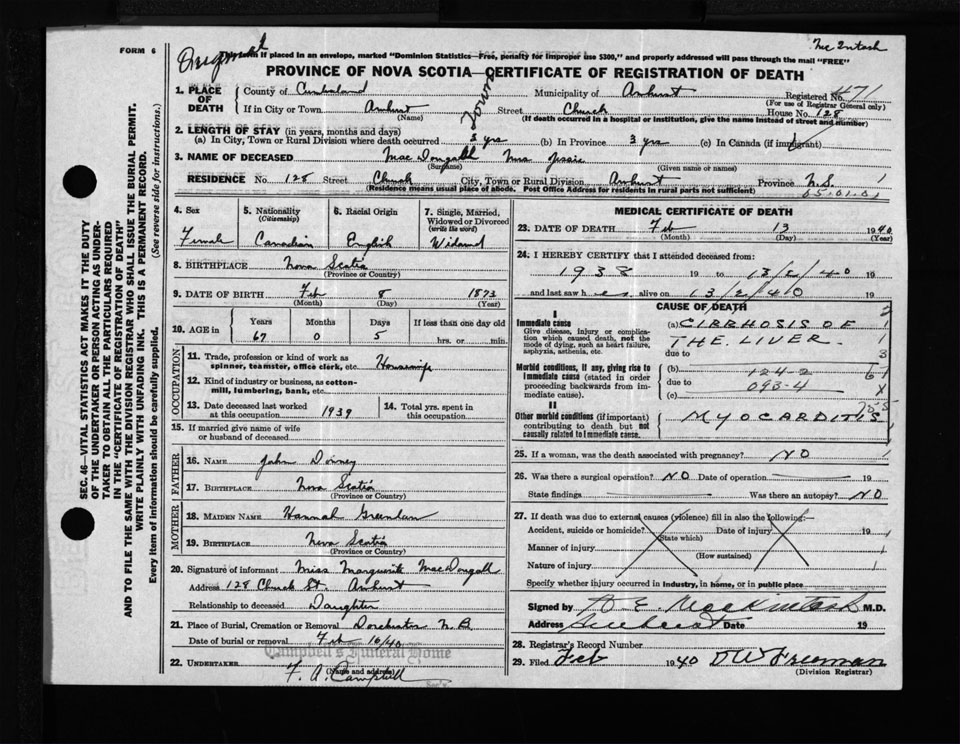 FORM 6
This form if placed in an envelope, marked "Dominion Statistics—Free, penalty for improper use $300," and properly addressed will pass through the mail "FREE"
PROVINCE OF NOVA SCOTIA—CERTIFICATE OF REGISTRATION OF DEATH
1. PLACE OF DEATH County of Cumberland Municipality of Amherst Registered No. 471
(For use of Registrar General only)
If in City or Town Amherst Street Church House No. 128
(Name) (If death occurred in a hospital or institution, give the name instead of street and number)
Town
2. LENGTH OF STAY (in years, months and days)
(a) In City, Town or Rural Division where death occurred 3 yrs (b) In Province 3 yrs (c) In Canada (if immigrant)
3. NAME OF DECEASED MacDougall Mrs Jessie
(Surname) (Given name or names)
RESIDENCE No. 128 Street Church City, Town or Rural Division Amherst Province N.S. 1
(Residence means usual place of abode. Post Office Address for residents in rural parts not sufficient)
65.01.01
4. Sex Female
5. Nationality (Citizenship) Canadian
6. Racial Origin English
7. Single, Married, Widowed or Divorced (write the word) Widowed
8. BIRTHPLACE Nova Scotia
(Province or Country)
9. DATE OF BIRTH Feb 8 1873
(Month) (Day) (Year)
10. AGE in Years Months Days If less than one day old
67 0 5 hrs. or min.
OCCUPATION
11. Trade, profession or kind of work as spinner, teamster, office clerk, etc. Housewife
12. Kind of industry or business, as cotton-mill, lumbering, bank, etc.
13. Date deceased last worked at this occupation 1939
14. Total yrs. spent in this occupation
15. If married give name of wife or husband of deceased
FATHER
16. NAME John Dorney
17. BIRTHPLACE Nova Scotia
(Province or Country)
MOTHER
18. MAIDEN NAME Hannah Greenlaw
19. BIRTHPLACE Nova Scotia
(Province or Country)
20. Signature of informant Miss Marguerite MacDougall
Address 128 Church St. Amherst
Relationship to deceased Daughter
21. Place of Burial, Cremation or Removal Dorchester N.B.
Date of burial or removal Feb 16/40
Campbell's Funeral Home
22. UNDERTAKER F. A. Campbell
(Name and address)
MEDICAL CERTIFICATE OF DEATH
23. DATE OF DEATH Feb 13 1940
(Month) (Day) (Year)
24. I HEREBY CERTIFY that I attended deceased from:
1938 19 to 13/2/40 19
and last saw her alive on 13/2/40 19
CAUSE OF DEATH
I
Immediate cause
Give disease, injury or complication which caused death, not the mode of dying, such as heart failure, asphyxia, asthenia, etc.
(a) CIRRHOSIS OF
THE LIVER.
due to
Morbid conditions, if any, giving rise to Immediate cause (stated in order proceeding backwards from immediate cause).
(b) 124-2
due to 093-4
(c)
II
Other morbid conditions (if important) contributing to death but not causally related to Immediate cause.
MYOCARDITIS
25. If a woman, was the death associated with pregnancy? NO
26. Was there a surgical operation? NO Date of operation
State findings Was there an autopsy? NO
27. If death was due to external causes (violence) fill in also the following:—
Accident, suicide or homicide? Date of injury 19
(State which)
Manner of injury
(How sustained)
Nature of injury
Specify whether injury occurred in industry, in home, or in public place
Signed by A E Mackintosh M.D.
Address Amherst Date 19
28. Registrar's Record Number
29. Filed Feb 1940 DW Freeman
(Division Registrar)
SEC. 46—VITAL STATISTICS ACT MAKES IT THE DUTY
OF THE UNDERTAKER OR PERSON ACTING AS UNDER-
TAKER TO OBTAIN ALL THE PARTICULARS REQUIRED
IN THE "CERTIFICATE OF REGISTRATION OF DEATH"
AND TO FILE THE SAME WITH THE DIVISION REGISTRAR WHO SHALL ISSUE THE BURIAL PERMIT.
WRITE PLAINLY WITH UNFADING INK. THIS IS A PERMANENT RECORD.
Every item of information should be carefully supplied. (See reverse side for instructions.)
McIntosh